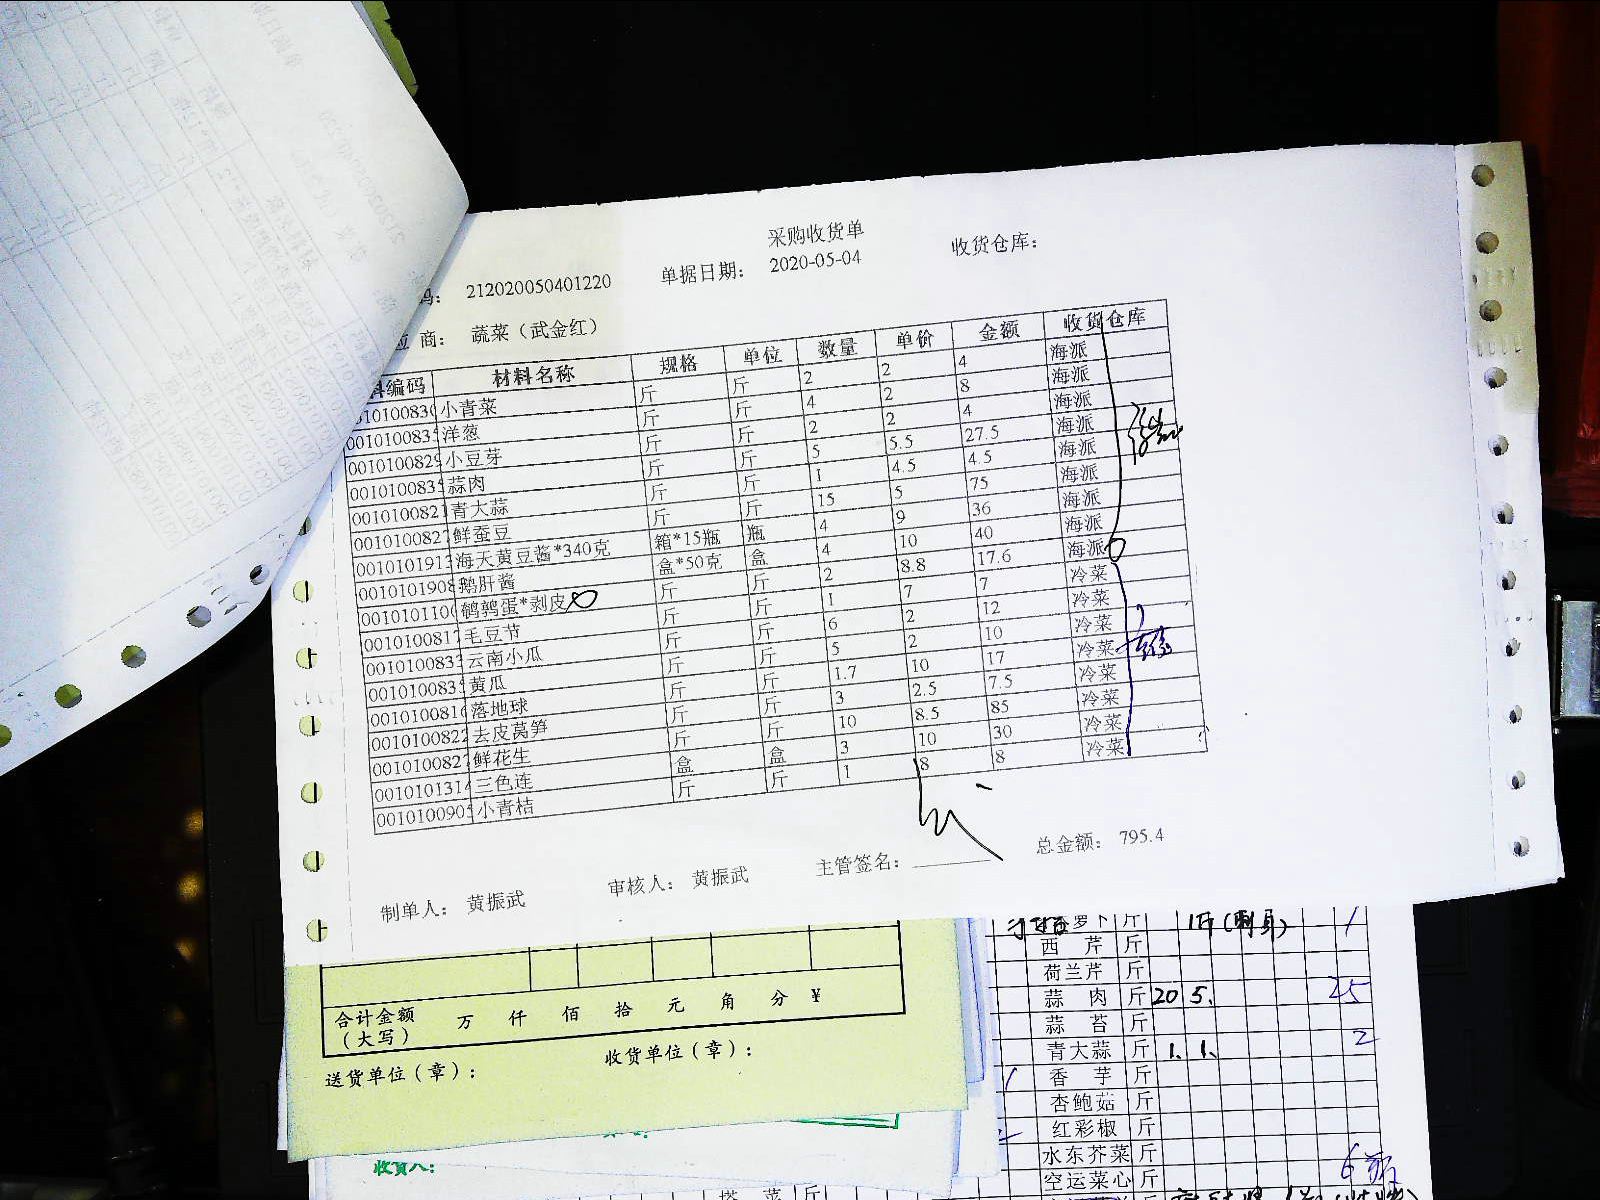 采购收货单
码： 212020050401220 单据日期： 2020-05-04 收货仓库：
应 商： 蔬菜（武金红）
料编码 材料名称 规格 单位 数量 单价 金额 收货仓库
小青菜 斤 斤 2 2 4 海派
001010083 洋葱 斤 斤 4 2 8 海派
001010082 小豆芽 斤 斤 2 2 4 海派
001010083 蒜肉 斤 斤 5 5.5 27.5 海派
001010082 青大蒜 斤 斤 1 4.5 4.5 海派
001010082 鲜蚕豆 斤 斤 15 5 75 海派
001010191 海天黄豆酱*340克 箱*15瓶 瓶 4 9 36 海派
001010190 鹅肝酱 盒*50克 盒 4 10 40 海派
001010110 鹌鹑蛋*剥皮 斤 斤 2 8.8 17.6 海派
001010081 毛豆节 斤 斤 1 7 7 冷菜
001010083 云南小瓜 斤 斤 6 2 12 冷菜
001010083 黄瓜 斤 斤 5 2 10 冷菜
001010081 落地球 斤 斤 1.7 10 17 冷菜
001010082 去皮莴笋 斤 斤 3 2.5 7.5 冷菜
001010082 鲜花生 斤 斤 10 8.5 85 冷菜
001010131 三色连 盒 盒 3 10 30 冷菜
001010090 小青桔 斤 斤 1 8 8 冷菜
制单人： 黄振武 审核人： 黄振武 主管签名： 总金额： 795.4
合计金额
（大写） 万 仟 佰 拾 元 角 分 ¥
送货单位（章）： 收货单位（章）：
收货人：
萝卜 斤 1斤(刺身) 1
西 芹 斤
荷兰芹 斤
蒜 肉 斤 20 5. 25
蒜 苔 斤
青大蒜 斤 1. 1. 2
香 芋 斤
杏鲍菇 斤
红彩椒 斤
水东芥菜 斤
空运菜心 斤 6
塔 菜 斤